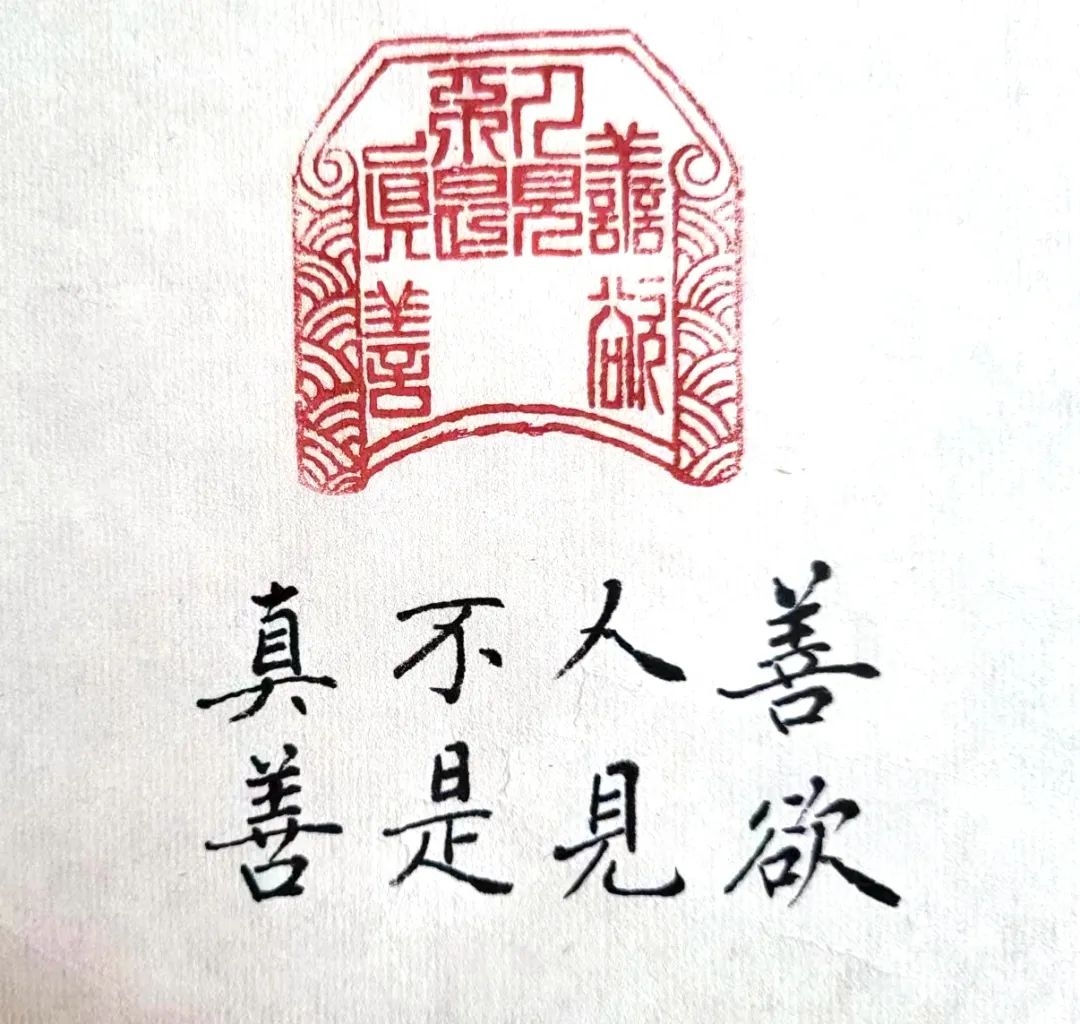 善欲
人見
不是
真善
善欲
人见
不是
真善